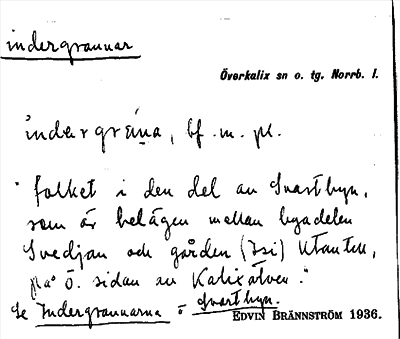 indergrannar
Överkalix sn o. tg. Norrb. l.
indergräina, bf. m. pl.
"folket i den del av Svartbyn,
som är belägen mellan byadelen
Svedjan och gården (Isi) Utantill,
på ö. sidan av Kalixälven."
Se Indergrannarna ö Svartbyn.
EDVIN BRÄNNSTRÖM 1936.